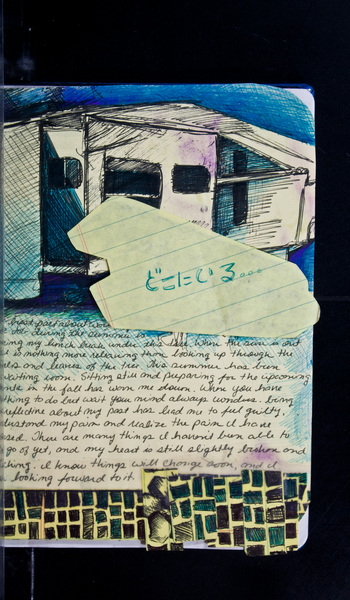 どこにいる...
best part about work
ing my lunch break under this tree. When the sun is out
is nothing more relaxing then looking up through the
and leaves of the tree. This summer has been
waiting room. Sitting still and preparing for the upcoming
in the fall has worn me down. When you have
thing to do but wait you mind always wonders. being
reflective about my past has lead me to feel guilty,
my pain and realize the pain i have
There are many things i haven't been able to
go of yet, and my heart is still slightly broken and
i know things will change soon, and i
looking forward to it.